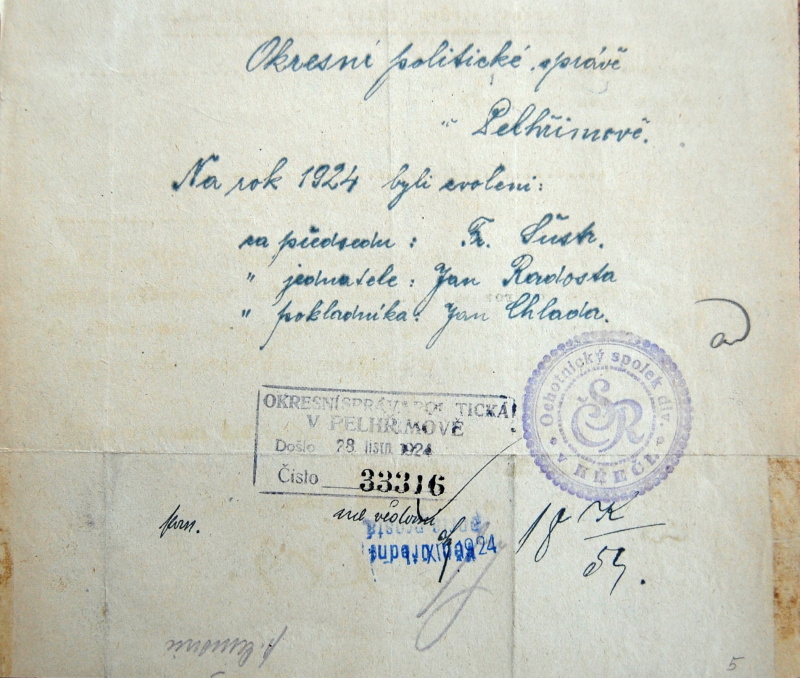 Okresní politické správě
v Pelhřimově.
Na rok 1924 byli zvoleni:
za předsedu : Fr. Šustr.
" jednatele : Jan Radosta
" pokladníka : Jan Chlada.
Ochotnický spolek div.
v KŘEČI.
OKRESNÍ SPRÁVA POLITICKÁ
V PELHŘIMOVĚ
Došlo 28 listo. 1924
Číslo 33316
1924
18 K
5